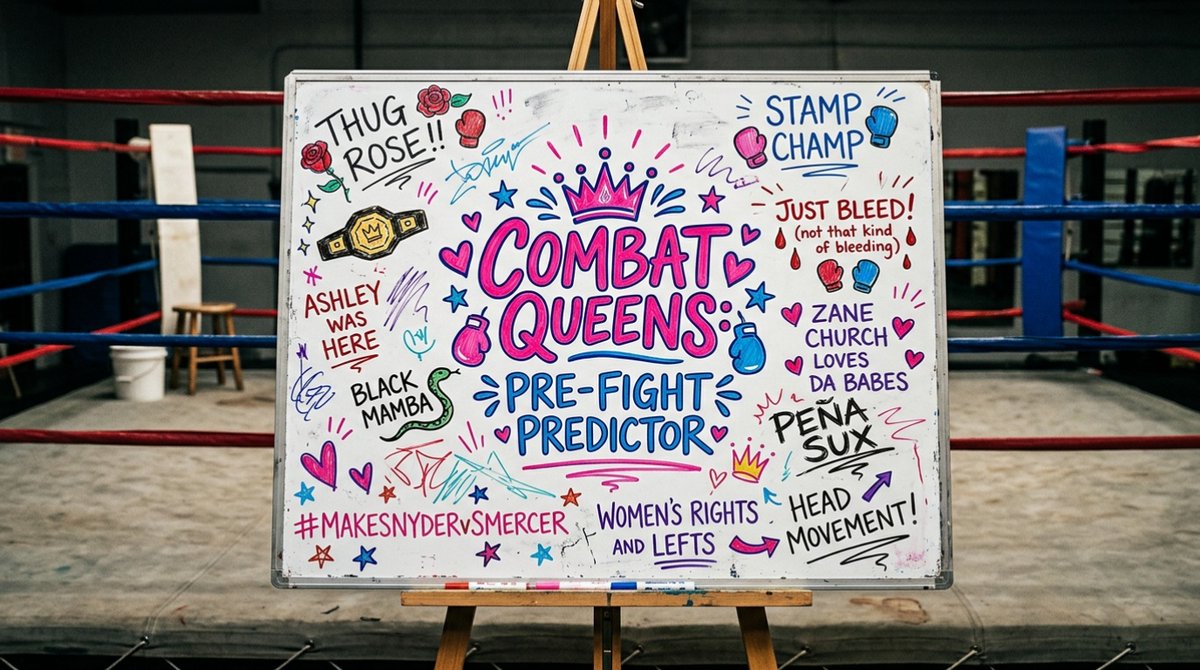 THUG
ROSE!!
!!!
STAMP
CHAMP
JUST BLEED!
(not that kind
of bleeding)
COMBAT
QUEENS:
PRE-FIGHT
PREDICTOR
ASHLEY
WAS
HERE
BLACK
MAMBA
ZANE
CHURCH
LOVES
DA BABES
PEÑA
SUX
#MAKESNYDERvSMERCER
WOMEN'S RIGHTS
AND LEFTS
HEAD
MOVEMENT!